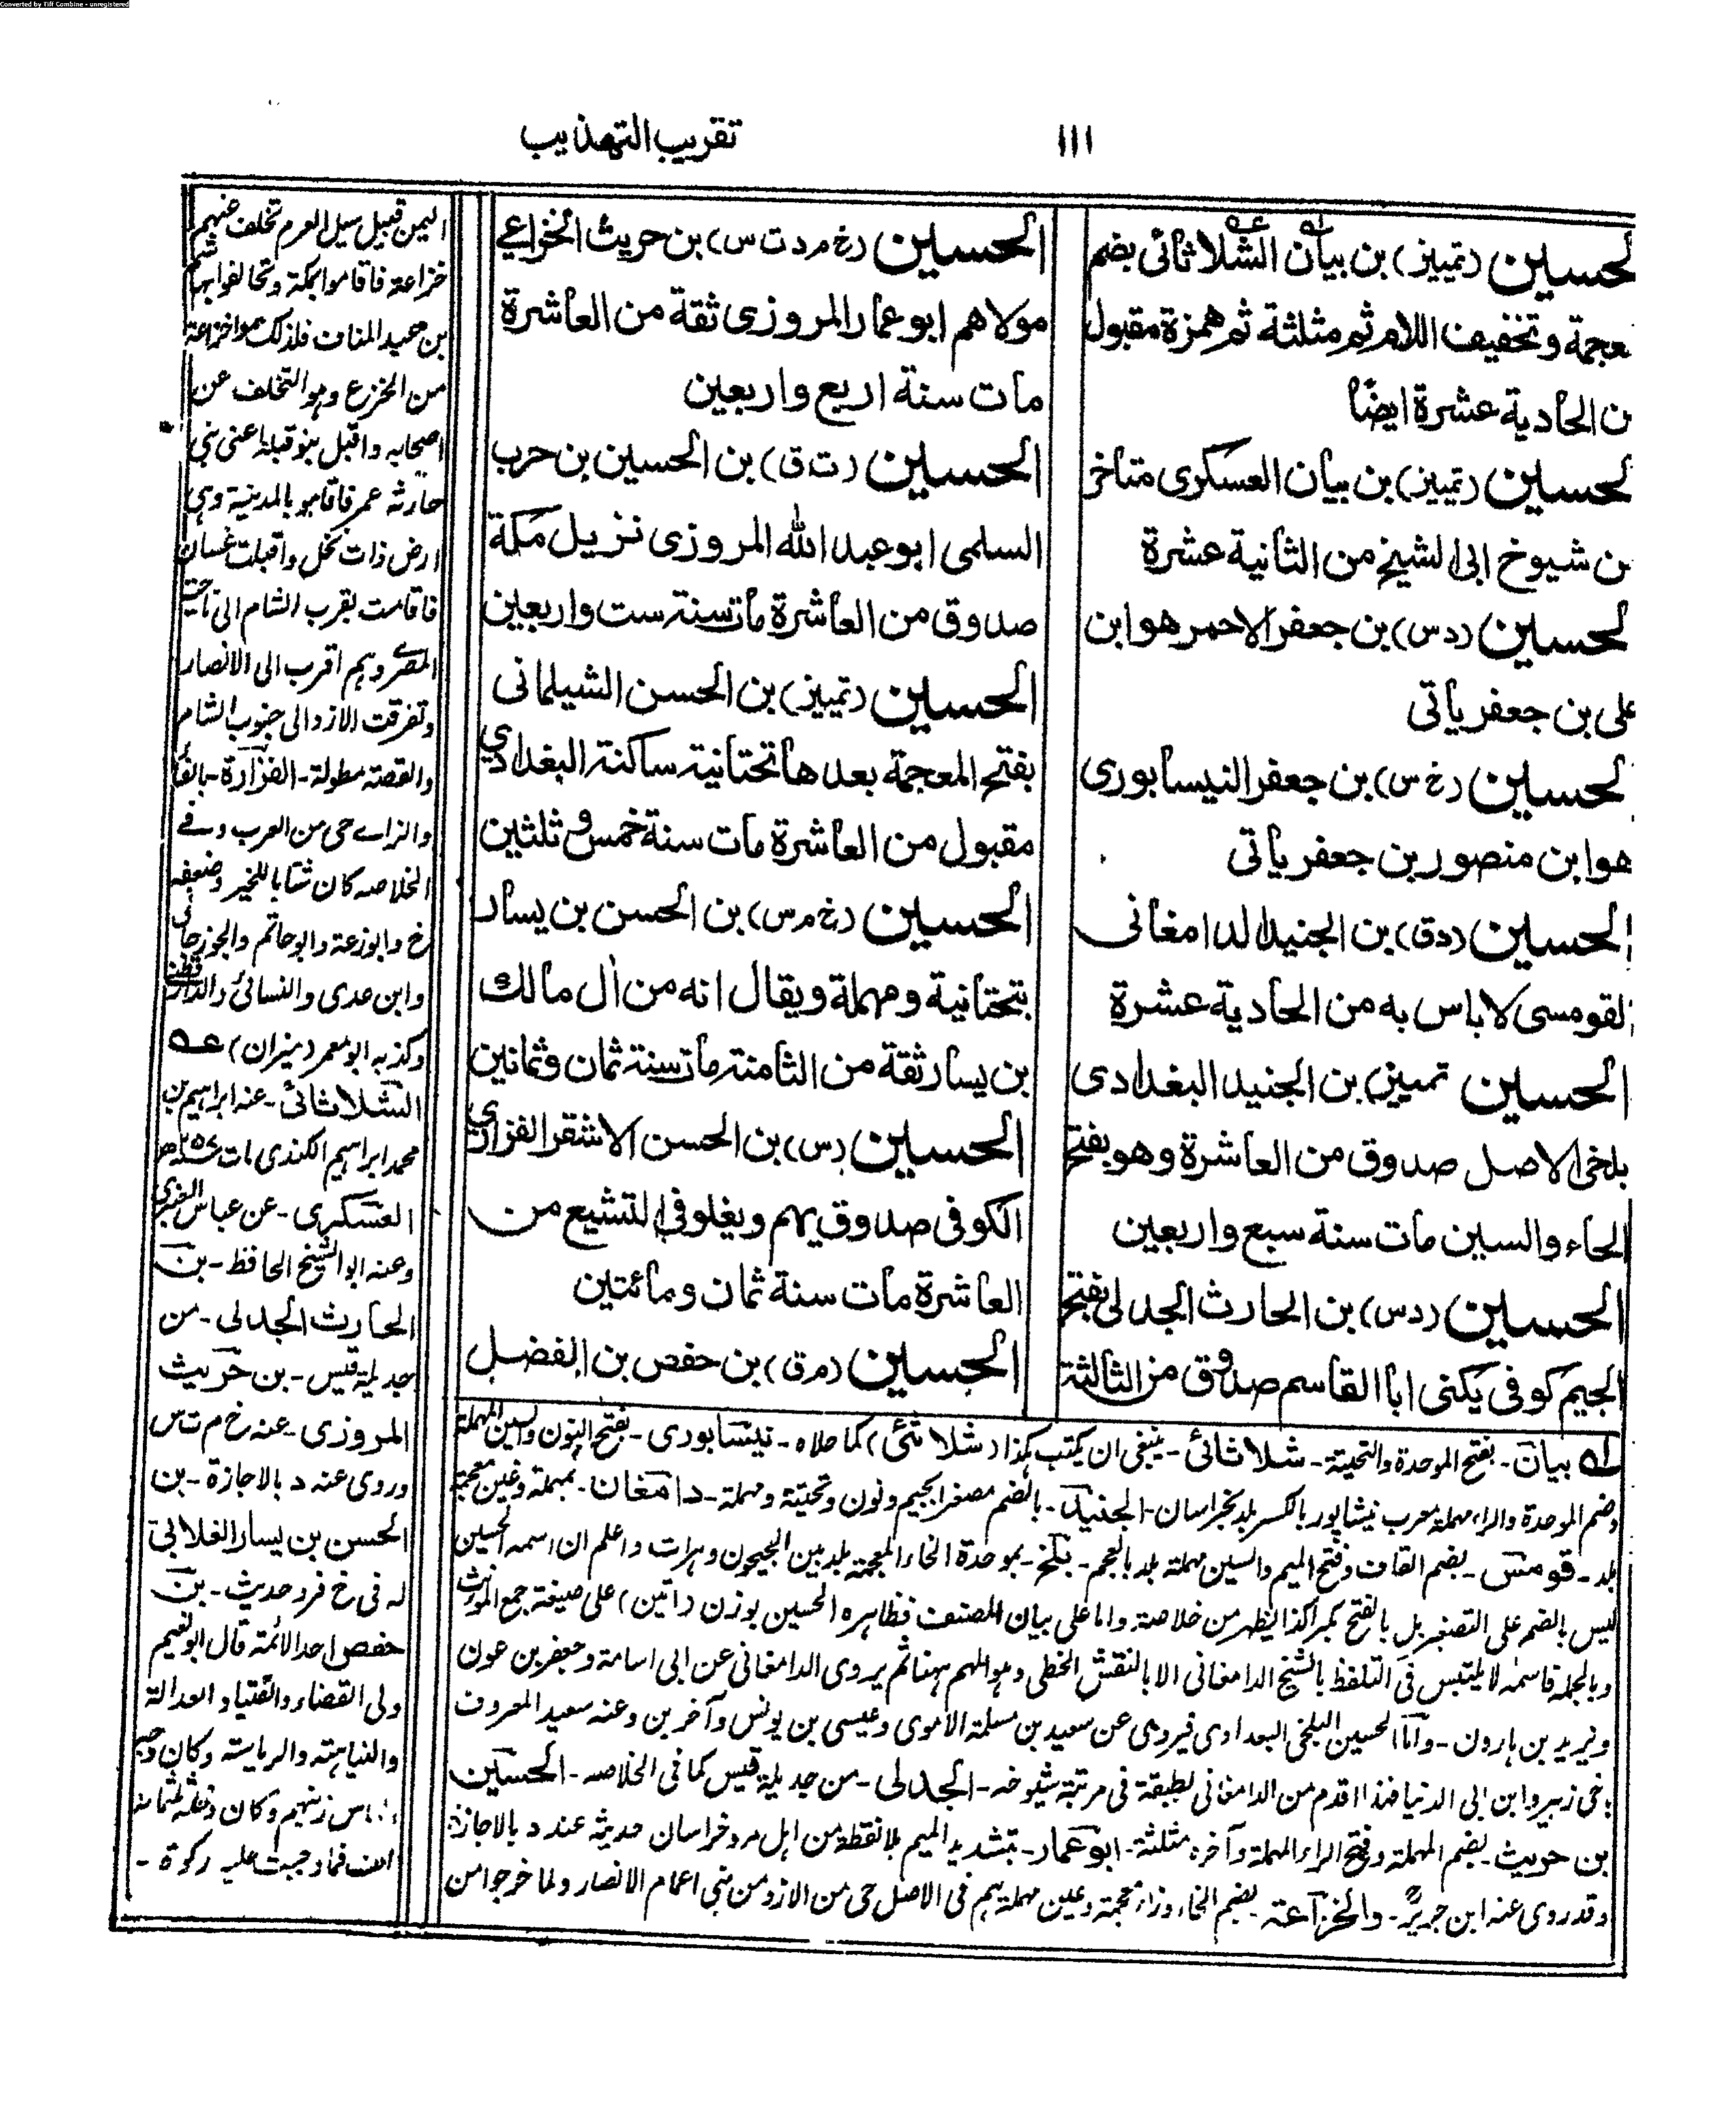 Converted by Tiff Combine - unregistered
١١١
تقريب التهذيب
لحسين (تمييز) بن بيان الشلاثائى بضم
معجمة وتخفيف اللام ثم مثلثة ثم همزة مقبول
من الحادية عشرة ايضًا
لحسين (تمييز) بن بيان العسكرى متاخر
من شيوخ ابى الشيخ من الثانية عشرة
لحسين (دس) بن جعفر الاحمر هو ابن
على بن جعفر ياتى
لحسين (خ س) بن جعفر النيسابورى
هو ابن منصور بن جعفر ياتى
الحسين (دق) بن الجنيد الدامغانى
القومسى لا باس به من الحادية عشرة
الحسين تمييز) بن الجنيد البغدادى
بلخى الاصل صدوق من العاشرة وهو بفتح
الحاء والسين مات سنة سبع واربعين
الحسين (دس) بن الحارث الجدلى بفتح
الجيم كوفى يكنى ابا القاسم صدوق من الثالثة
الحسين (خ م د ت س) بن حريث الخزاعي
مولاهم ابو عمار المروزى ثقة من العاشرة
مات سنة اربع واربعين
الحسين (ت ق) بن الحسين بن حرب
السلمى ابو عبد الله المروزى نزيل مكة
صدوق من العاشرة مات سنة ست واربعين
الحسين (تمييز) بن الحسن الشيلمانى
بفتح المعجمة بعدها تحتانية ساكنة البغدادي
مقبول من العاشرة مات سنة خمس و ثلثين
الحسين (خ م س) بن الحسن بن يسار
بتحتانية ومهملة ويقال انه من اٰل مالك
بن يسار ثقة من الثامنة مات سنة ثمان وثمانين
الحسين (س) بن الحسن الاشقر الفزاري
الكوفى صدوق يهم ويغلو فى التشيع من
العاشرة مات سنة ثمان ومائتين
الحسين (م ق) بن حفص بن الفضل
له بيان - بفتح الموحدة والتحتية - شلاثائى - ينبغى ان يكتب هكذا (شلاثئى) كما حلاه - نيسابورى - بفتح النون والسين المهملة
وضم الموحدة والراء مهملة معرب نيشاپور بالكسر بلد بخراسان - الجنيد - بالضم مصغرا بجيم ونون وتحتية ومهملة - دامغان - بمهملة وغين معجمة
بلد - قومس - بضم القاف وفتح الميم والسين مهملة بلد بالعجم - بلخ - بموحدة الخاء المعجمة بلد بين الجيحون وهرات واعلم ان اسمه الحسين
ليس بالضم على التصغير بل بالفتح مكبرا كذا يظهر من خلاصة واما على بيان المصنف فظاهره الحسين بوزن (اتين) على صيغة جمع المونث
وبالجملة فاسمه لا يلتبس فى التلفظ بالشيخ الدامغانى الا بالنقش الخطى وهو المهم ههنا ثم يروى الدامغانى عن ابى اسامة وجعفر بن عون
ويزيد بن هارون - واما الحسين البلخى البغدادى فيروى عن سعيد بن مسلمة الاموى وعيسى بن يونس وآخرين وعنه سعيد المعروف
باخى زبير وابن ابى الدنيا فهذا اقدم من الدامغانى لطبقة فى مرتبة شيوخه - الجدلى - من جديلة قيس كما فى الخلاصه - الحسين
بن حريث - بضم المهملة وفتح الراء المهملة وآخره مثلثة - ابو عمار - بتشديد الميم بلا نقطة من اهل مرو خراسان حديثه عند د بالاجازة
وقد روى عنه ابن جرير - والخزاعة - بضم الخاء وزاء معجمة وعين مهملة هم فى الاصل حى من الازد من بنى اعمام الانصار ولما خرجوا من
اليمن قبيل سيل العرم تخلف عنهم
خزاعة فاقاموا بمكة وتحالفوا
بن عبد المناف فلذلك سموا خزاعة
من الخزع وهو التخلف عن
اصحابه واقبل بنو قيلة اعنى بنى
حارثة عمر فاقامو بالمدينة وهى
ارض ذات نخل واقبلت غسان
فاقامت بقرب الشام الى ناحية
المصر وهم اقرب الى الانصار
وتفرقت الازد الى جنوب الشام
والقصة مطولة - الفزارة - بالفاء
والزاے حى من العرب وفے
الخلاصه كان شتابا للخير وضعفه
خ وابوزعة وابوحاتم والجوزجانى
وابن عدى والنسائى والدارقطنى
وكذبه ابو معمر (ميزان) عه
الشلاثائى - عنه ابراهيم بن
محمد ابراهيم الكندى مات ٢٥٧ھ
العسكرى - عن عباس
وعنه ابو الشيخ الحافظ - بن
الحارث الجدلى - من
جديلة قيس - بن حريث
المروزى - عنه خ م ت س
وروى عنه د بالاجازة - بن
الحسن بن يسار الغلابى
له فى خ فرد حديث - بن
حفص احد الائمة قال ابو نعيم
ولى القضاء والفتيا والعدالة
والنباهته والرياسته وكان
الناس زينهم وكان دخله ثمانة
الف فما وجبت عليه زكوة -